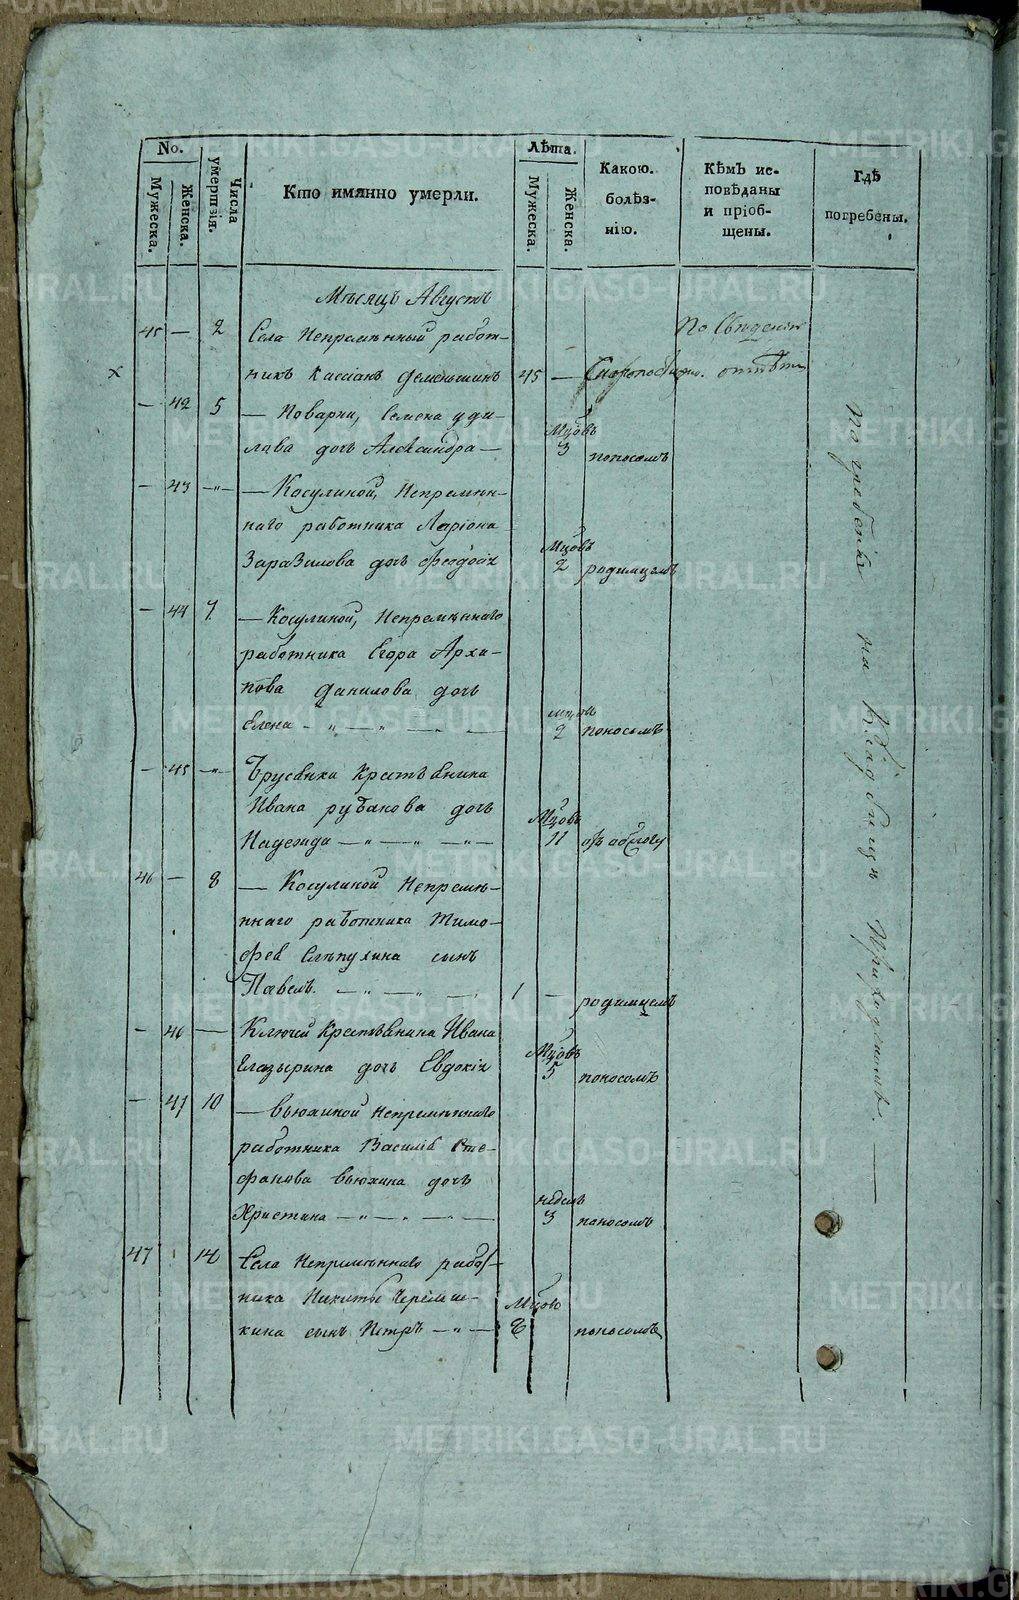 No.
Мужеска.
Женска.
Числа умершія.
Кто имянно умерли.
Лѣта.
Мужеска.
Женска.
Какою. болѣз-нію.
Кѣмъ ис-повѣданы и пріоб-щены.
Гдѣ погребены.
Мѣсяцъ Августъ
45 — 2 Села Непремѣнный работ- По Свѣденію
х никъ Кассіанъ Деменьшинъ 45 — Скоропостижно. отпѣтъ
— 42 5 — Поварни, Семена
дочь Александра — Мцовъ 3 поносомъ
— 43 —„— — Косулиной, Непремѣн-
наго работника Ларіона
Заразилова дочь Феодосія Мцовъ 2 родимцемъ
— 44 7. — Косулиной, Непремѣннаго
работника Егора Архи-
пова Данилова дочь
Елена — „ — „ — — мцовъ 2 поносомъ
— 45 —„— Брусянка Крестьянина
Ивана Рубанова дочь
Надежда — „ — „ — „ — Мцовъ 11
46 — 8 — Косулиной Непремѣ-
ннаго работника Тимо-
фея Слѣпухина сынъ
Павелъ. — „ — „ — „ 1 — родимцемъ
— 46 — Ключей Крестьянина Ивана
Глазырина дочь Евдокія Мцовъ 5 поносомъ
— 47 10 — Вьюхиной Непремѣннаго
работника Василія Сте-
фанова Вьюхина дочь
Христина — „ — „ — „ — недель 3 поносомъ
47 14 Села Непремѣннаго рабо-
ника Никиты Черемш-
кина сынъ Петръ — „ — Мцовъ 8 поносомъ
Погребены на Кладбищѣ Приходскомъ. —
METRIKI.GASO-URAL.RU